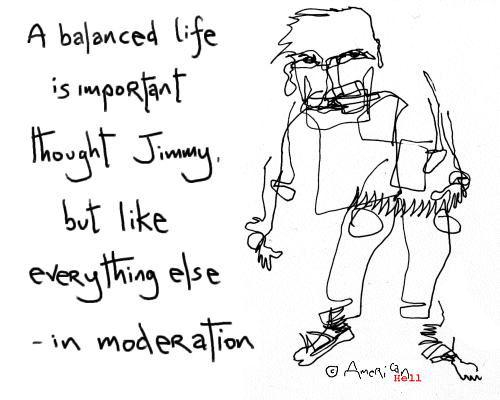 A balanced life
is important
thought Jimmy,
but like
everything else
- in moderation
© American
Hell